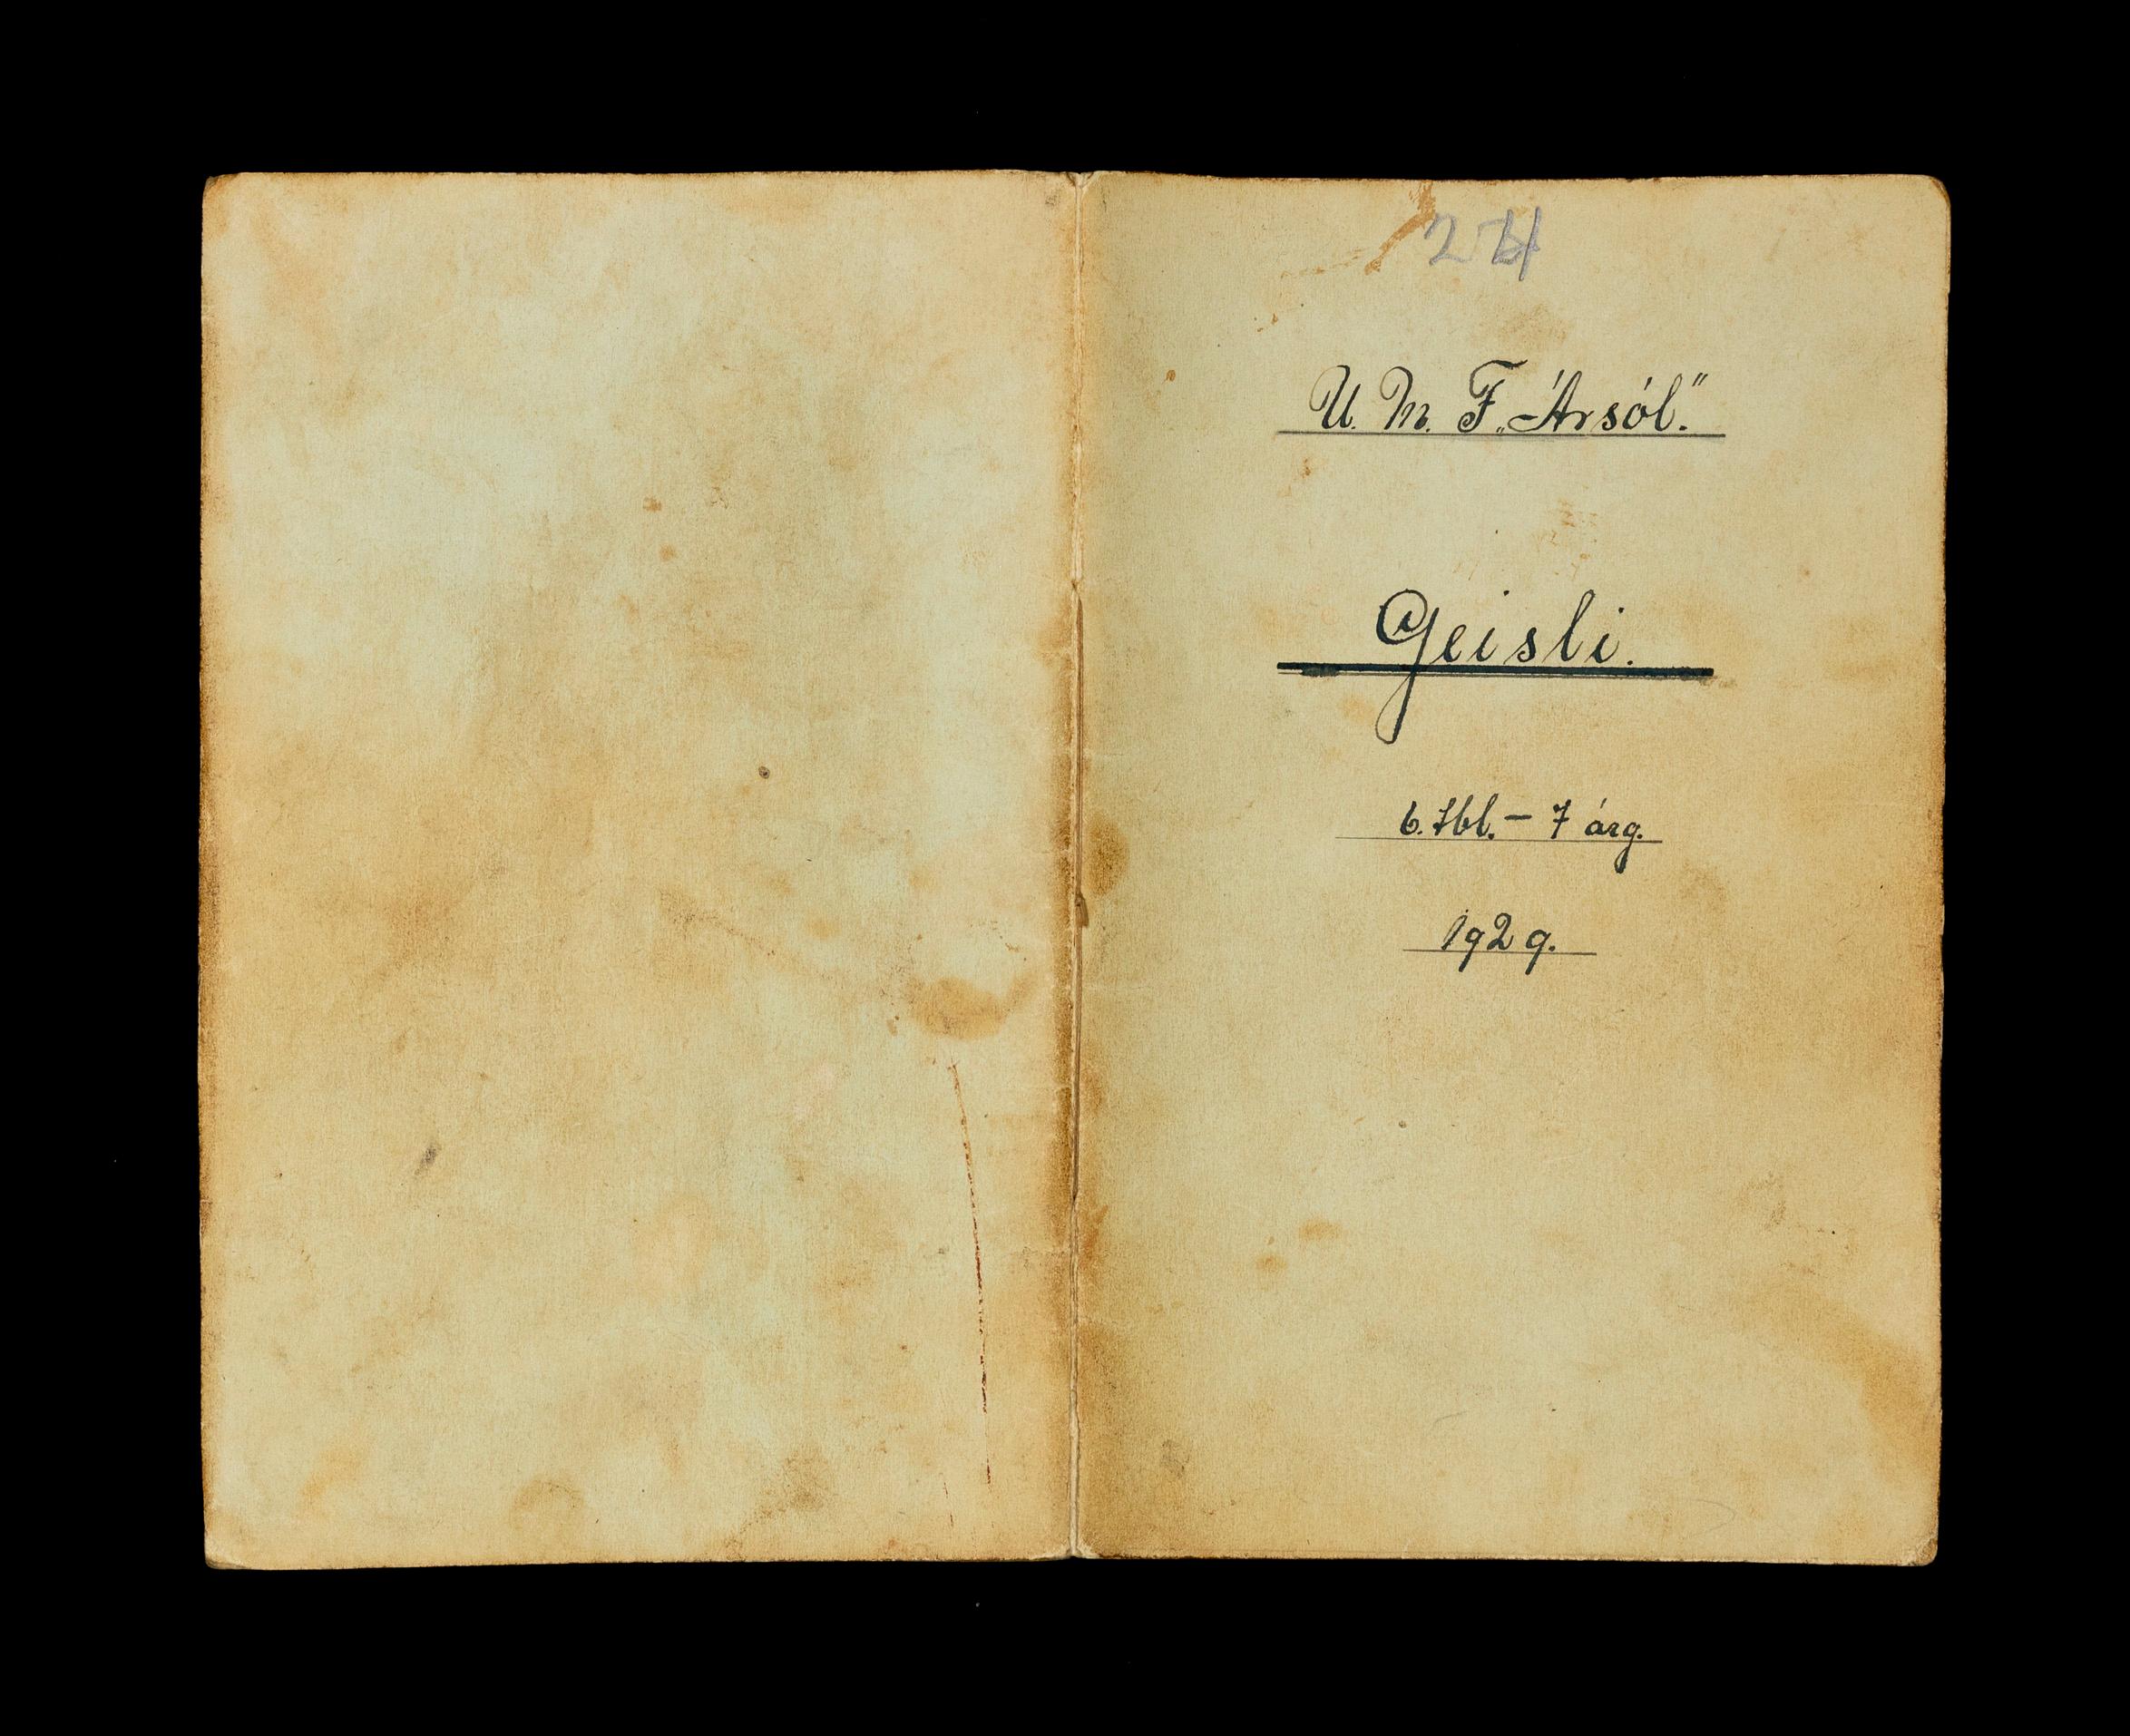 U. M. F. „Ársól."
Geisli.
6. tbl. – 7 árg.
1929.